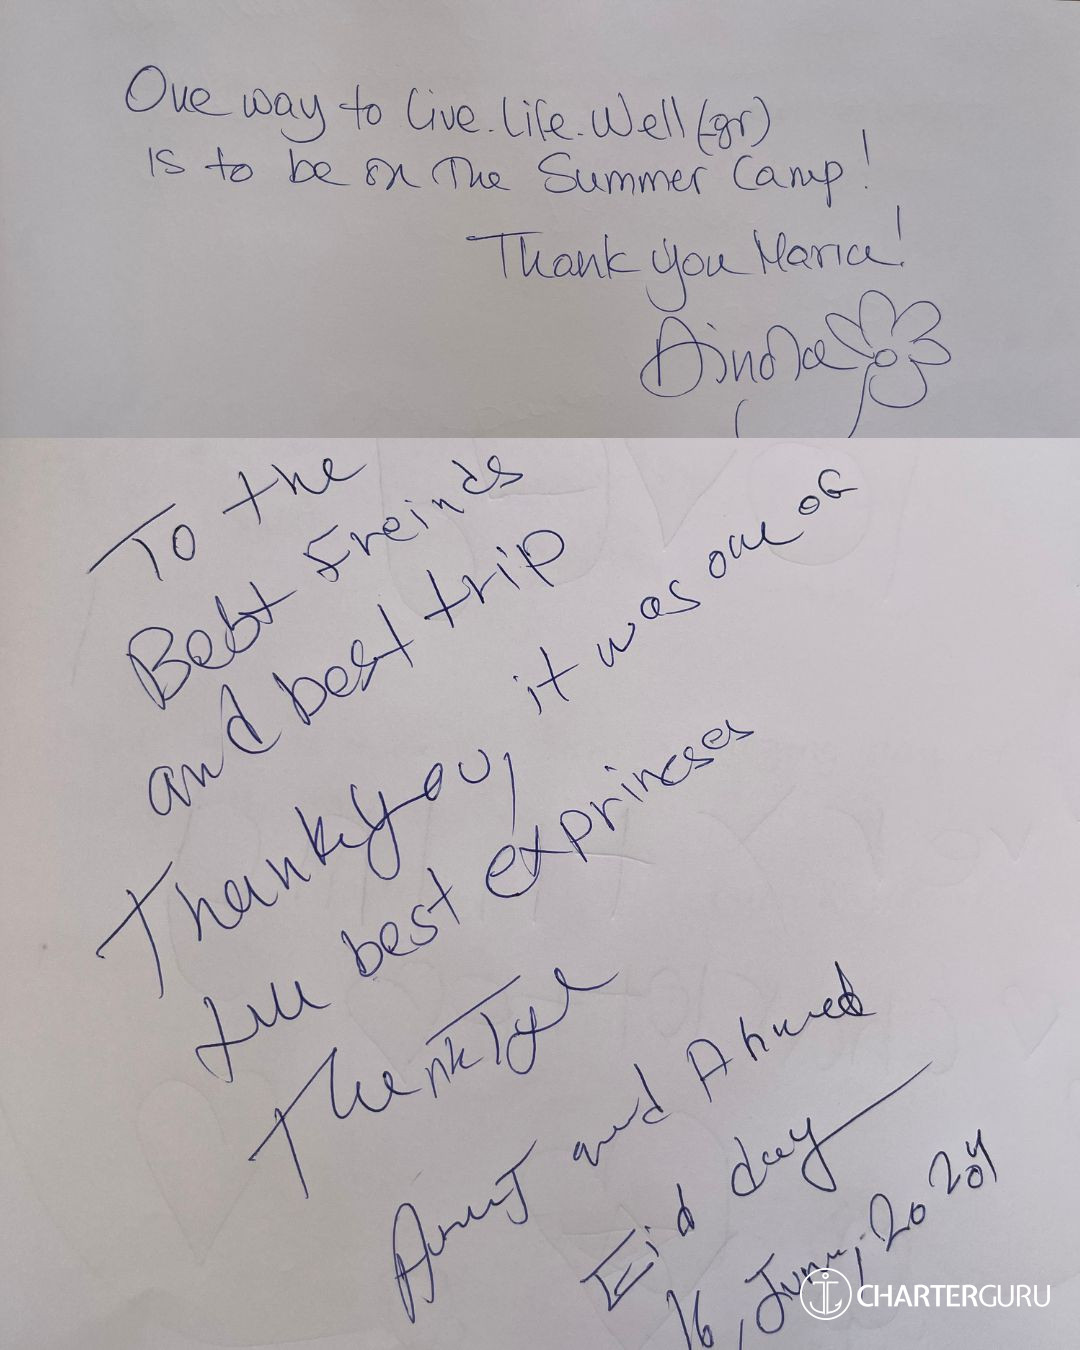 One way to Live.Life.Well(gr)
is to be on the Summer Camp!
Thank you Maria!
To the
Best Freinds
and best trip
Thank you, it was one of
best exprinses
Thank
and Ahmed
Eid day
16, June, 2024
CHARTERGURU